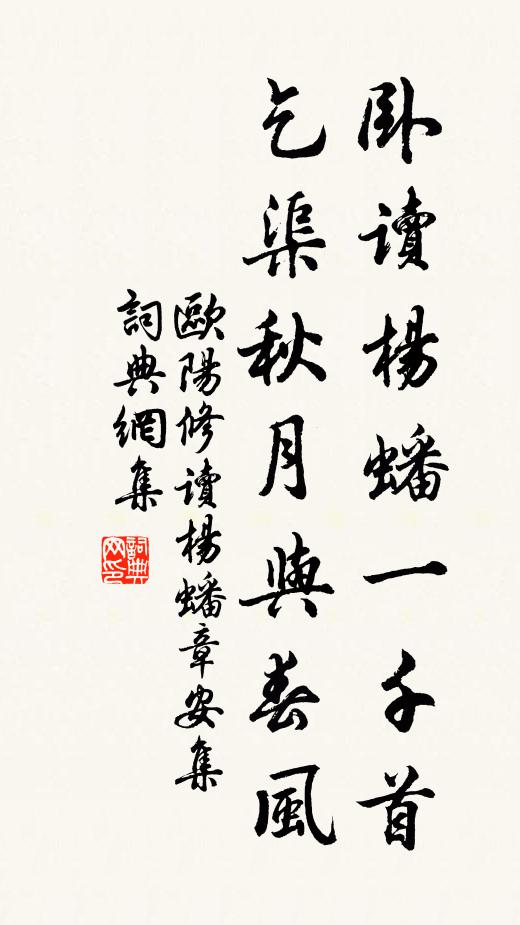 卧讀楊蟠一千首
乞渠秋月與春風
歐陽修讀楊蟠章安集
詞典網集
詞典
网印